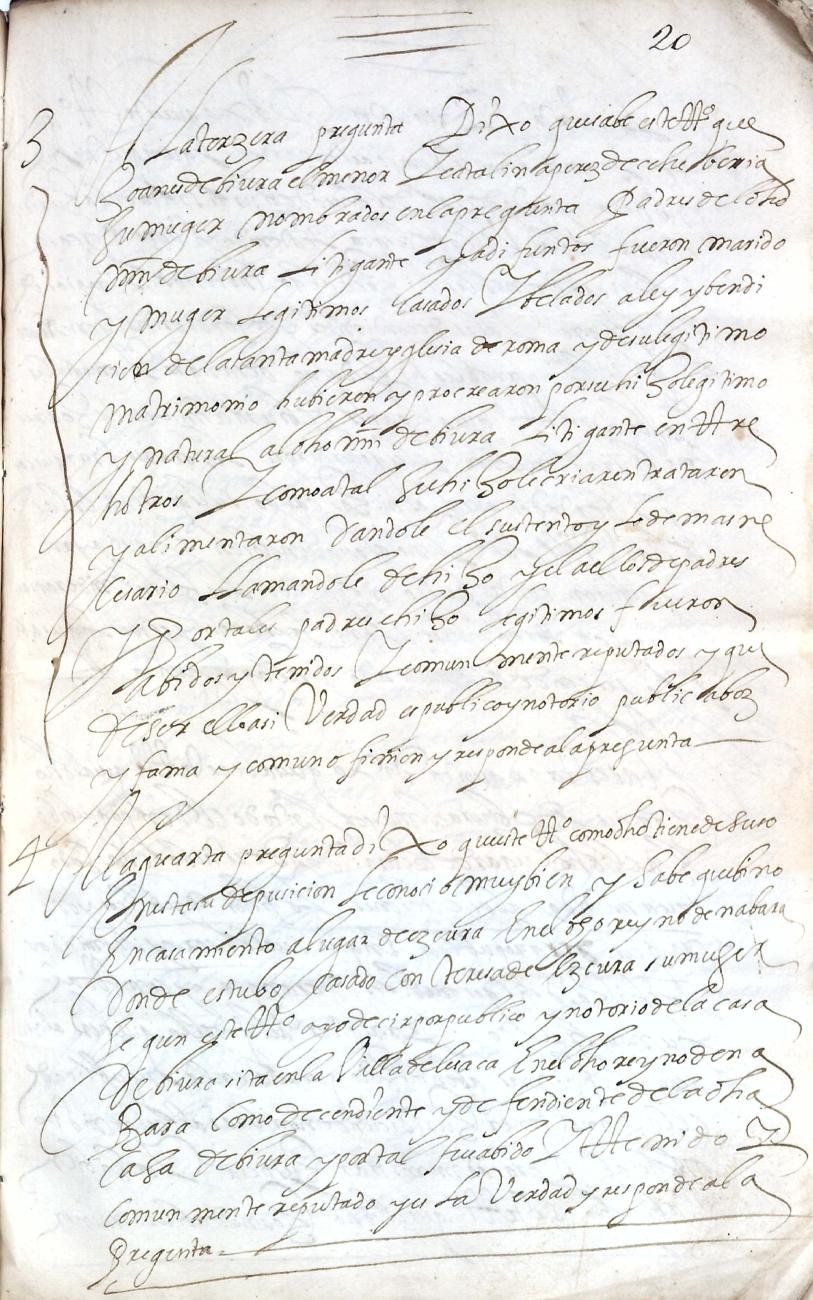 20
3 A la terzera pregunta Dixo que sabe este tt.º que
Joanes de biura el menor Y catalina perez de echeberria
su muger nombrados en la pregunta Padres del dho
mĩn de biura Litigante ya difuntos fueron marido
y muger legitimos casados Y belados a ley y bendi
cion de la santa madre yglesia de roma y de su legitimo
matrimonio hubieron y procrearon por su hijo legitimo
y natural al dho mĩn de biura litigante entre
hotros Y como a tal su hijo le criaron trataron
y alimentaron Dandole el sustento y lo demas ne
cesario llamandole de hijo y el a ellos de padres
y Por tales padres e hijo legitimos fueron
abidos y tenidos Y comun mente reputados y que
de ser ello asi Verdad es publico y notorio publica boz
y fama y comun opinion y responde a la pregunta
4 A la quarta pregunta dixo que este tt.º como dho tiene de suso
En esta su depusicion le conocio muy bien y sabe que bino
En casamiento a lugar de ezcura En el dho reyno de nabara
Donde estubo Casado con teresa de Ezcura su muger
segun este tt.º oyo decir por publico y notorio de la casa
De biura sita en la Villa de lesaca En el dho reyno de na
bara Como decendiente y defendiente de la dha
Casa de biura y por tal fue abido Y ttenido Y
comun mente reputado y es la Verdad y responde a la
Pregunta